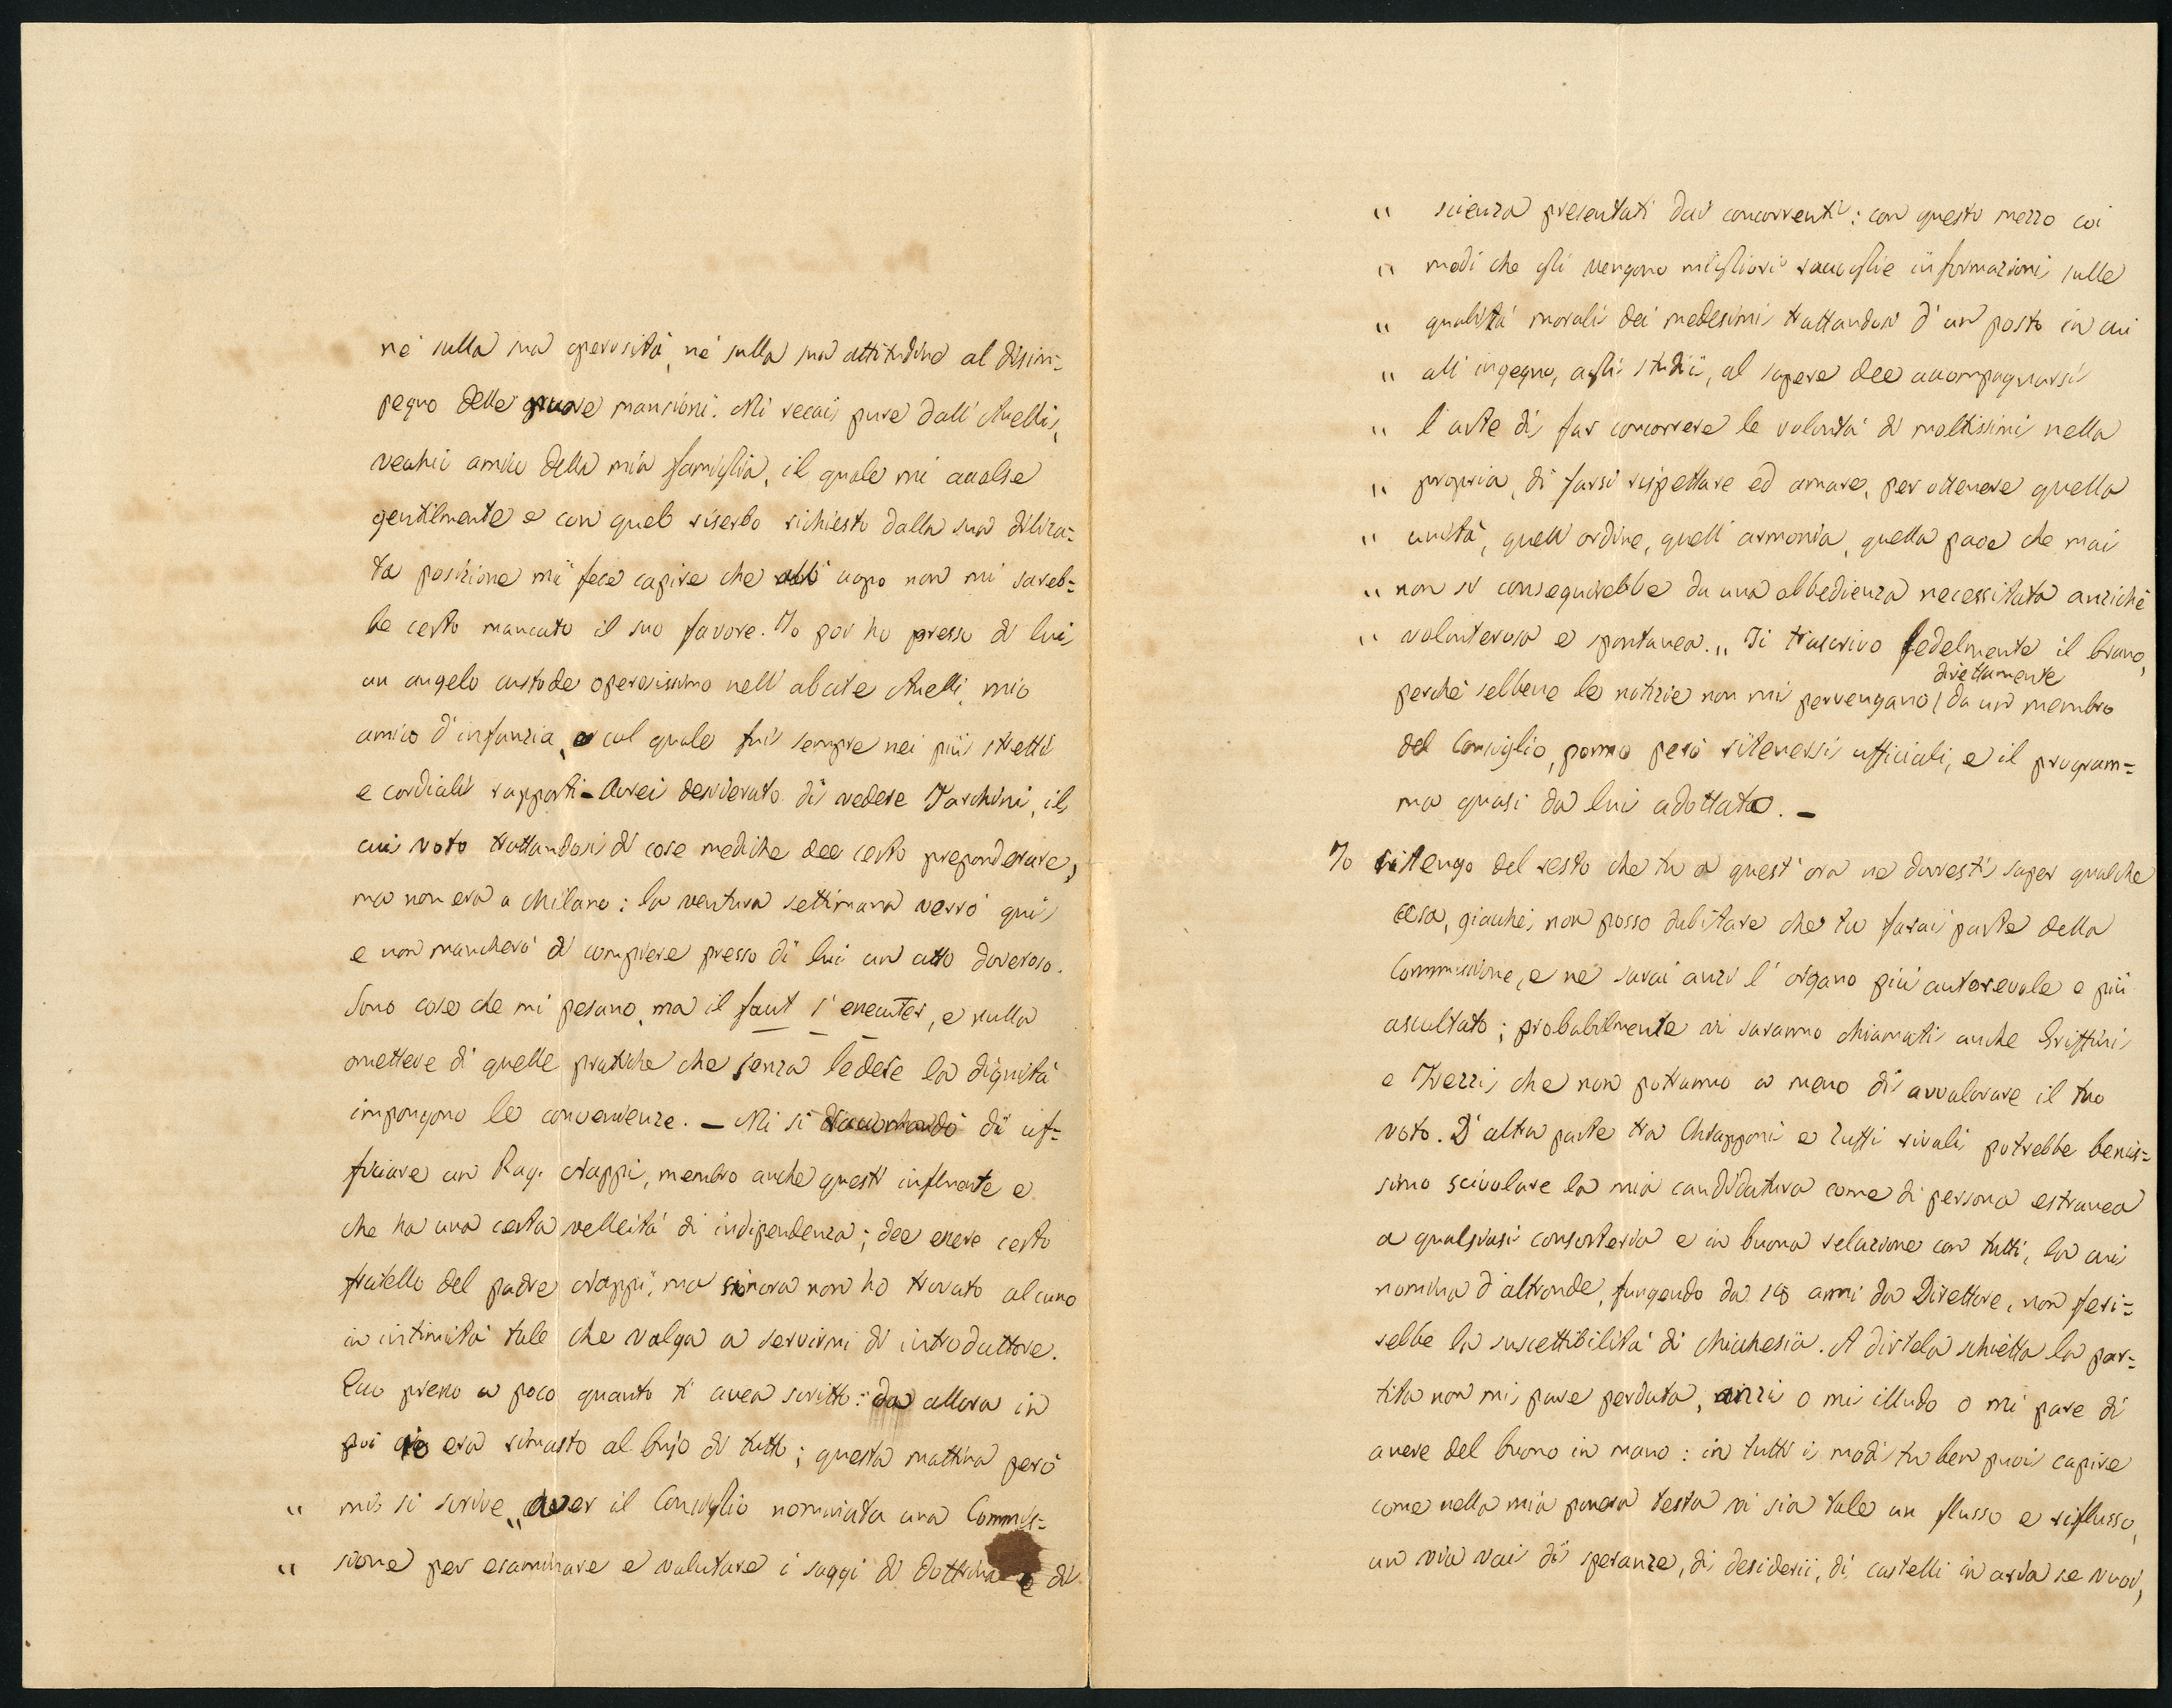 nè sulla sua operosità, nè sulla sua attitudine al disim=
pegno delle nuove mansioni. Mi recai pure dall'Anelli,
vecchio amico della mia famiglia, il quale mi accolse
gentilmente e con quel riserbo richiesto dalla sua dilica=
ta posizione mi fece capire che all'uopo non mi sareb=
be certo mancato il suo favore. Io poi ho presso di lui
un angelo custode operosissimo nell'abate Anelli, mio
amico d'infanzia, col quale fui sempre nei più stretti
e cordiali rapporti – Avrei desiderato di vedere Tarchini, il
cui voto trattandosi di cose mediche dee certo preponderare,
ma non era a Milano: la ventura settimana verrò qui
e non mancherò di compiere presso di lui un atto doveroso.
Sono cose che mi pesano, ma il faut s'executer, e nulla
omettere di quelle pratiche che senza ledere la dignità
impongono le convenienze. – Mi si raccomandò di uf=
ficiare un Rag. Crappi, membro anche questi influente e
che ha una certa velleità di indipendenza; dee essere certo
fratello del padre Crappi, ma sinora non ho trovato alcuno
in intimità tale che valga a servirmi di introduttore.
Ecco presso a poco quanto ti avea scritto: da allora in
poi io era rimasto al bujo di tutto; questa mattina però
" mi si scrive „aver il Consiglio nominata una Commis=
" sione per esaminare e valutare i saggi di dottrina e di
" scienza presentati dai concorrenti: con questo mezzo coi
" modi che gli vengono migliori raccoglie informazioni sulle
" qualità morali dei medesimi trattandosi d'un posto in cui
" all'ingegno, agli studii, al sapere dee accompagnarsi
" l'arte di far concorrere le volontà di moltissimi nella
" propria, di farsi rispettare ed amare, per ottenere quella
" unità, quell'ordine, quell'armonia, quella pace che mai
" non si conseguirebbe da una obbedienza necessitata anzichè
" volonterosa e spontanea.„ Ti trascrivo fedelmente il brano,
perchè sebbene le notizie non mi pervengano direttamente da un membro
del Consiglio, ponno però ritenersi ufficiali, e il program=
ma quasi da lui adottato. –
Io ritengo del resto che tu a quest'ora ne dovresti saper qualche
cosa, giacchè non posso dubitare che tu farai parte della
Commissione, e ne sarai anzi l'organo più autorevole e più
ascoltato; probabilmente vi saranno chiamati anche Griffini
e Trezzi, che non potranno a meno di avvalorare il tuo
voto. D'altra parte tra Chiapponi e Zuffi rivali potrebbe benis=
simo scivolare la mia candidatura come di persona estranea
a qualsiasi consorteria e in buona relazione con tutti, la cui
nomina d'altronde, fungendo da 18 anni da Direttore, non feri=
rebbe la suscettibilità di chichesia. A dirtela schietta la par=
tita non mi pare perduta, anzi o mi illudo o mi pare di
avere del buono in mano: in tutti i modi tu ben puoi capire
come nella mia povera testa vi sia tale un flusso e riflusso,
un via vai di speranze, di desiderii, di castelli in aria se vuoi,